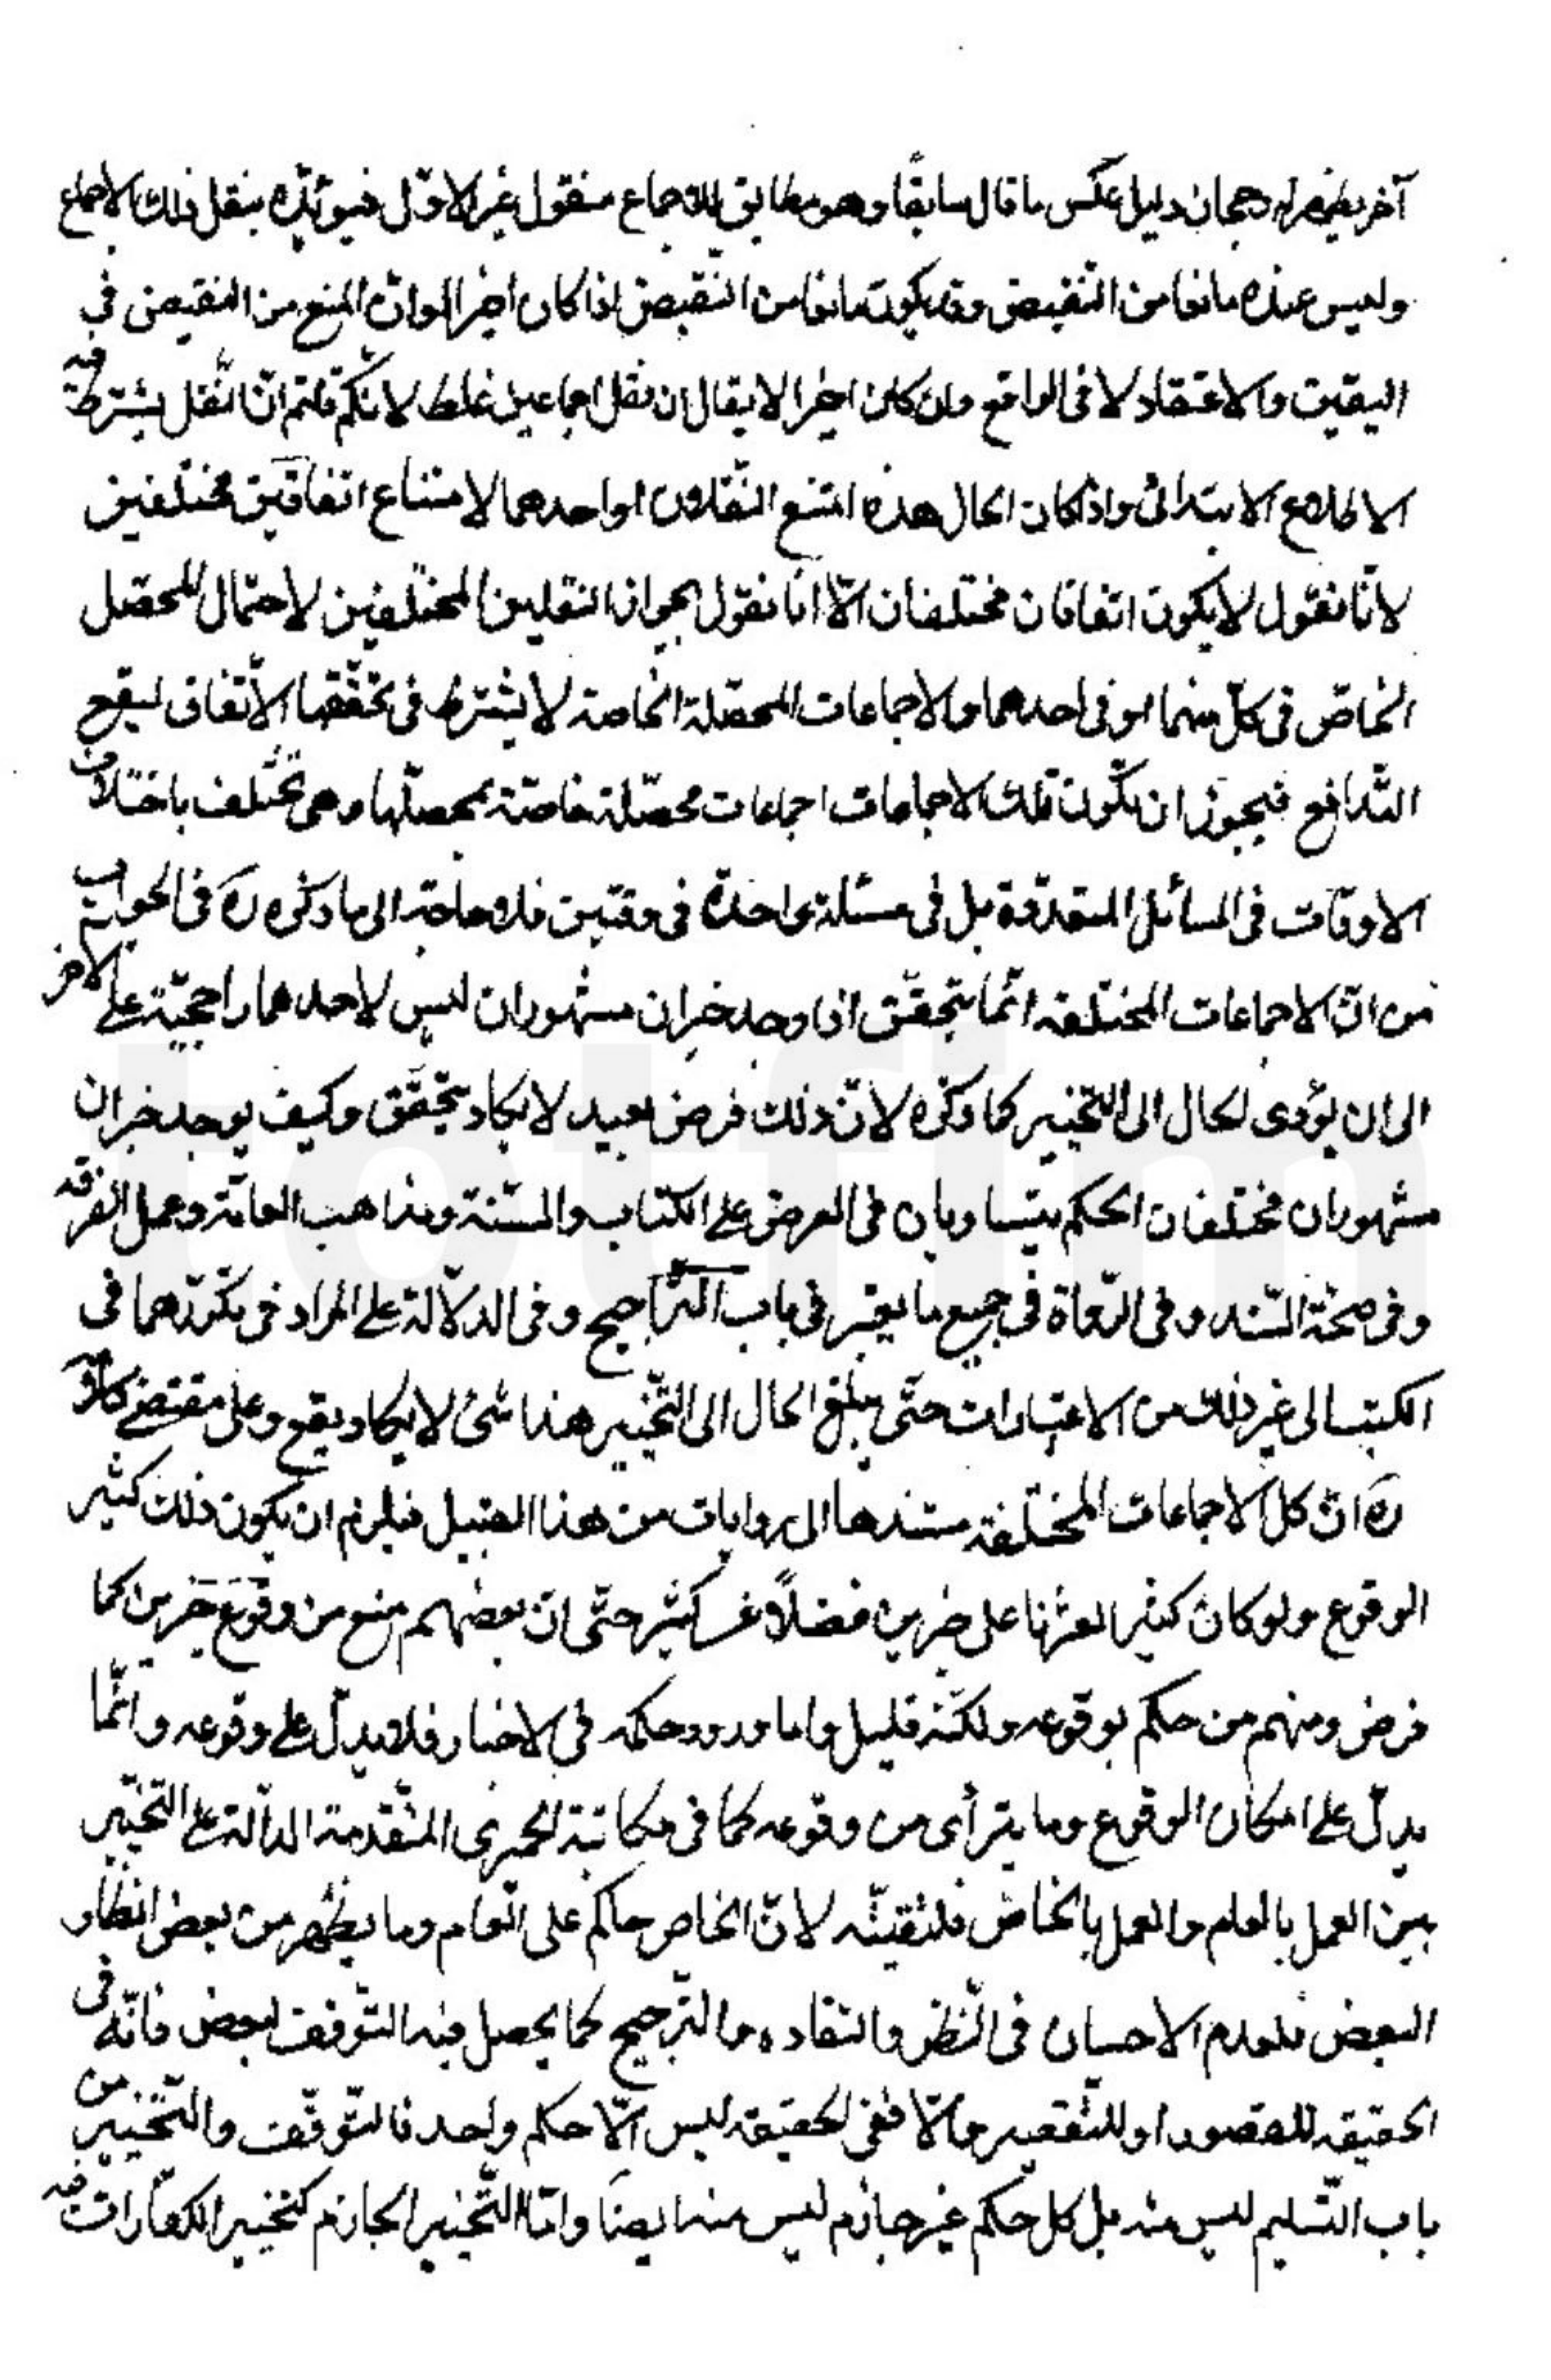 آخر يظهر له رجحان دليل عكس ما قال سابقًا وهو مطابق للاجماع منقول غير الاوّل فيؤيّده بنقل ذلك الاجماع
وليس عنده مانعا من النّقيض وقد يكون مانعا من النّقيض اذا كان اخيرا لوانّ المنع من النقيض في
اليقين والاعتقاد لا في الواقع وان كان اخيرا لا يقال ان نقل اجماعين غلط لانّكم قلتم انّ النّقل يشترط فيه
الاطلاع الابتدائى واذا كان الحال هذه امتنع النّقلان او احدهما لامتناع اتفاقين مختلفين
لانّا نقول لا يكون اتفاقان مختلفان الّا انّا نقول بجواز النقلين المختلفين لاحتمال المحصّل
الخاصّ في كلّ منهما او في احدهما والاجماعات المحصّلة الخاصة لا يشترط في تحقّقها الاتّفاق ليقع
التّدافع فيجوز ان تكون تلك الاجماعات اجماعات محصّلة خاصّة بمحصلّها وهي تختلف باختلاف
الاوقات في المسائل المتعدّدة بل في مسئلة واحدة في وقتين فلا حاجة الى ما ذكره ره في الجواب
من انّ الاجماعات المختلفة انّما يتحقّق اذا وجد خبران مشهوران ليس لاحدهما راجحيّة على الآخر
الى ان يؤدى الحال الى التّخيير كما ذكره لانّ ذلك فرض بعيد لا يكاد يتحقّق وكيف يوجد خبران
مشهوران مختلفان الحكم يتساويان في العرض على الكتاب والسّنة ومذاهب العامّة وعمل الفرقة
وفى صحّة السّند وفى الرّواة في جميع ما يعتبر في باب التّراجيح وفى الدلالة على المراد وفى تكرّرهما في
الكتب الى غير ذلك من الاعتبارات حتّى يبلغ الحال الى التّخيير هذا شئ لا يكاد يقع وعلى مقتضى كلامه
ره انّ كل الاجماعات المختلفة مستندها الى روايات من هذا القبيل فيلزم ان يكون ذلك كثير
الوقوع ولو كان كثيرا لعثرنا على خبرين فضلاً عن كثير حتّى انّ بعضهم منع من وقوع خبرين كما
فرض ومنهم من حكم بوقوعه ولكنّه قليل واما ورود حكمه في الاخبار فلا يدلّ على وقوعه وانّما
يدلّ على امكان الوقوع وما يترأى من وقوعه كما في مكاتبة الحميرى المتقدمة الدالّة على التّخيير
بين العمل بالعام والعمل بالخاصّ فلتقيّة لانّ الخاص حاكم على العام وما يظهر من بعض انظار
البعض فلعدم الاحسان في النّظر والتفاده والتّرجيح كما يحصل فيه التّوقف لبعض فانّه في
الحقيقة للقصور او للتّقصير والّا ففى الحقيقة ليس الّا حكم واحد فالتّوقّف والتّخيير من
باب التّسليم ليس منه بل كل حكم غير جازم ليس منه ايضًا وامّا التّخيير الجازم كتخيير الكفّارات فهو